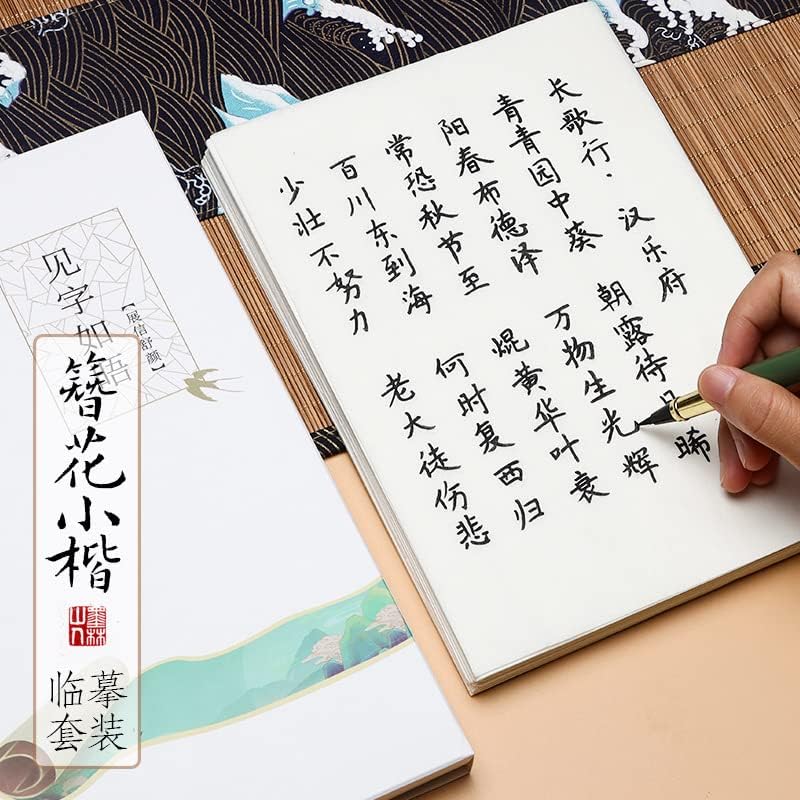 长歌行·汉乐府
青青园中葵 朝露待日晞
阳春布德泽 万物生光辉
常恐秋节至 焜黄华叶衰
百川东到海 何时复西归
少壮不努力 老大徒伤悲
见字如
【展信舒颜】
簪花小楷
墨林山人
临摹
套装